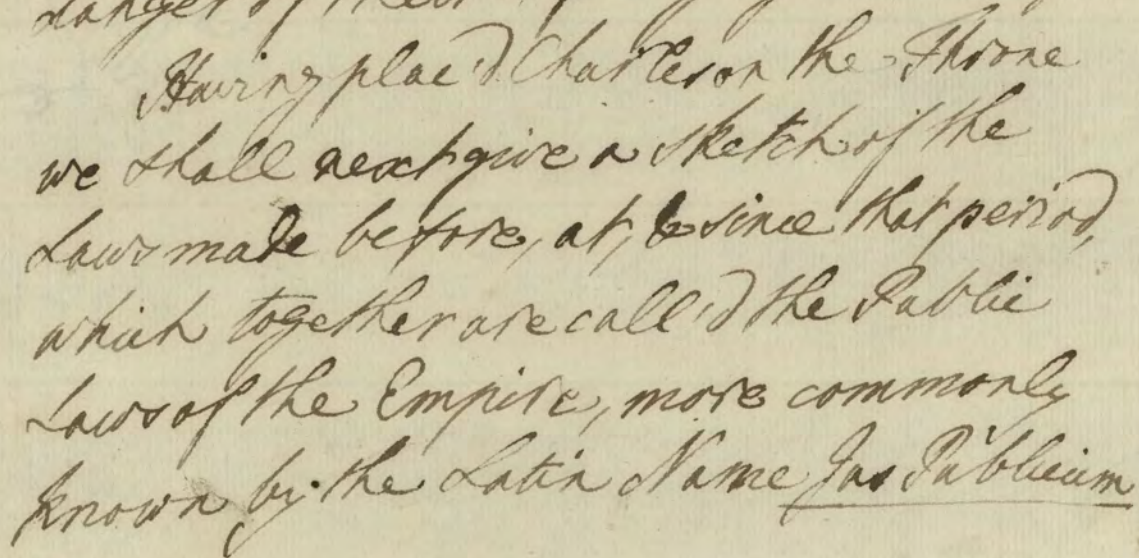 danger of their
Having plac'd Charles on the Throne
we shall next give a sketch of the
Laws made before, at, & since that period,
which together are call'd the Public
Laws of the Empire, more commonly
known by the Latin Name Jus Publicum